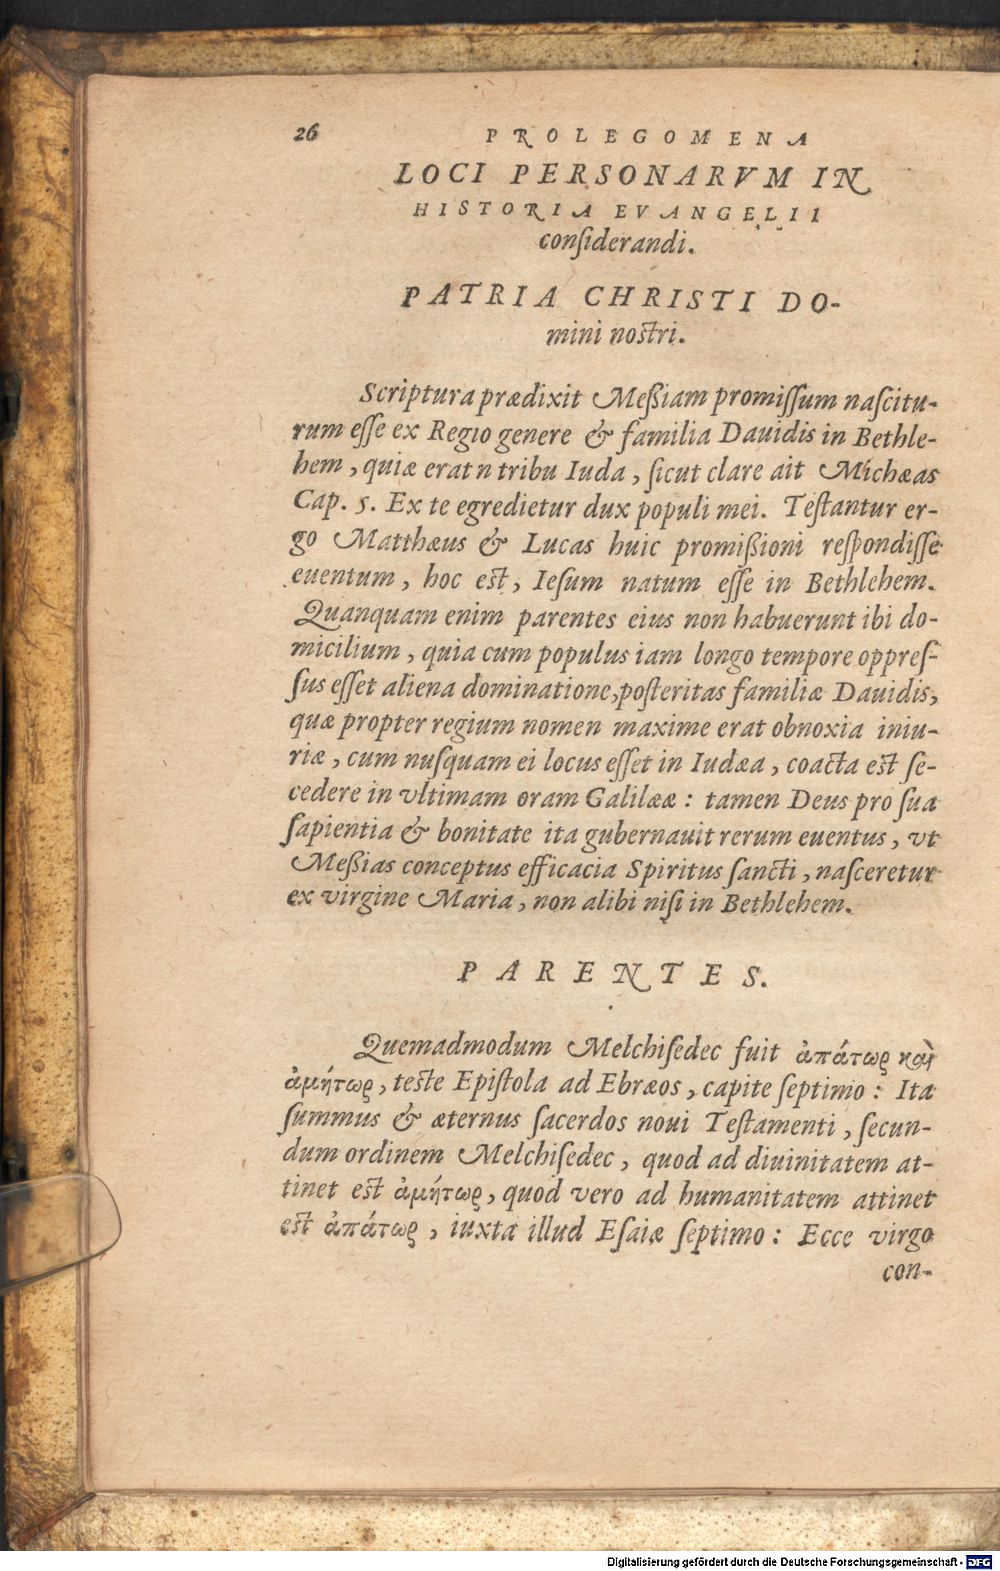 26 PROLEGOMENA
LOCI PERSONARVM IN
HISTORIA EVANGELII
conſiderandi.
PATRIA CHRISTI DO-
mini noſtri.
Scriptura prædixit Meßiam promiſſum naſcitu-
rum eſſe ex Regio genere & familia Dauidis in Bethle-
hem, quiæ erat n tribu Iuda, ſicut clare ait Michæas
Cap. 5. Ex te egredietur dux populi mei. Teſtantur er-
go Matthæus & Lucas huic promißioni reſpondiſſe
euentum, hoc eſt, Ieſum natum eſſe in Bethlehem.
Quanquam enim parentes eius non habuerunt ibi do-
micilium, quia cum populus iam longo tempore oppreſ-
ſus eſſet aliena dominatione, poſteritas familiæ Dauidis,
quæ propter regium nomen maxime erat obnoxia iniu-
riæ, cum nuſquam ei locus eſſet in Iudæa, coacta eſt ſe-
cedere in vltimam oram Galilææ: tamen Deus pro ſua
ſapientia & bonitate ita gubernauit rerum euentus, vt
Meßias conceptus efficacia Spiritus ſancti, naſceretur
ex virgine Maria, non alibi niſi in Bethlehem.
PARENTES.
Quemadmodum Melchiſedec fuit ἀπάτωρ καὶ
ἀμήτωρ, teſte Epiſtola ad Ebræos, capite ſeptimo: Ita
ſummus & æternus ſacerdos noui Teſtamenti, ſecun-
dum ordinem Melchiſedec, quod ad diuinitatem at-
tinet eſt ἀμήτωρ, quod vero ad humanitatem attinet
eſt ἀπάτωρ, iuxta illud Eſaiæ ſeptimo: Ecce virgo
con-
Digitalisierung gefördert durch die Deutsche Forschungsgemeinschaft - DFG